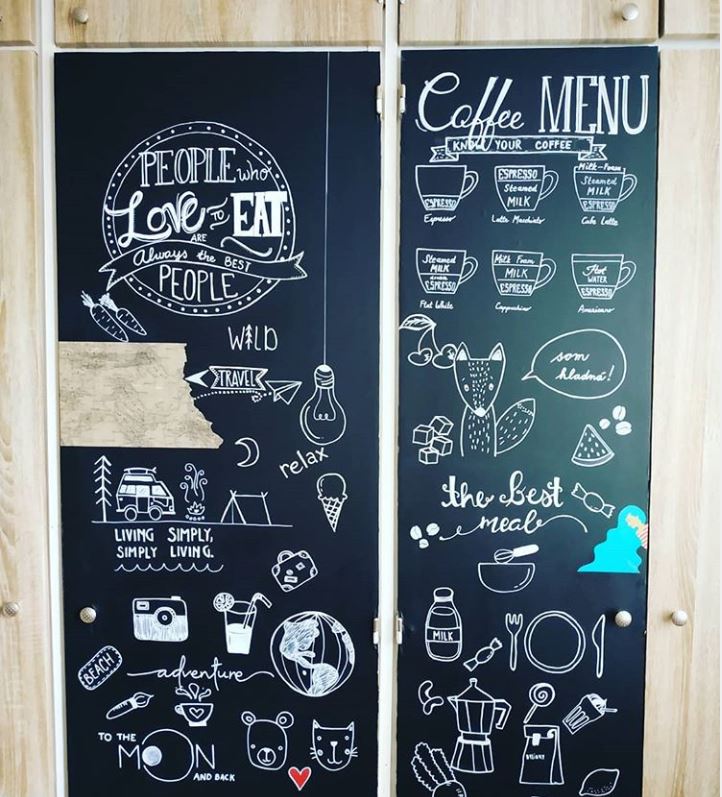 PEOPLE who
Love TO EAT
ARE
Always the BEST
PEOPLE
WILD
TRAVEL
relax
LIVING SIMPLY,
SIMPLY LIVING.
BEACH
adventure
TO THE
MOON
AND BACK
Coffee MENU
KNOW YOUR COFFEE
ESPRESSO
Espresso
ESPRESSO
Steamed
MILK
Latte Macchiato
Milk-Foam
Steamed
MILK
ESPRESSO
Cafe Latte
Steamed
MILK
double
ESPRESSO
Flat White
Milk Foam
MILK
ESPRESSO
Cappuccino
Hot
WATER
ESPRESSO
Americano
som
hladná!
the best
meal
MILK